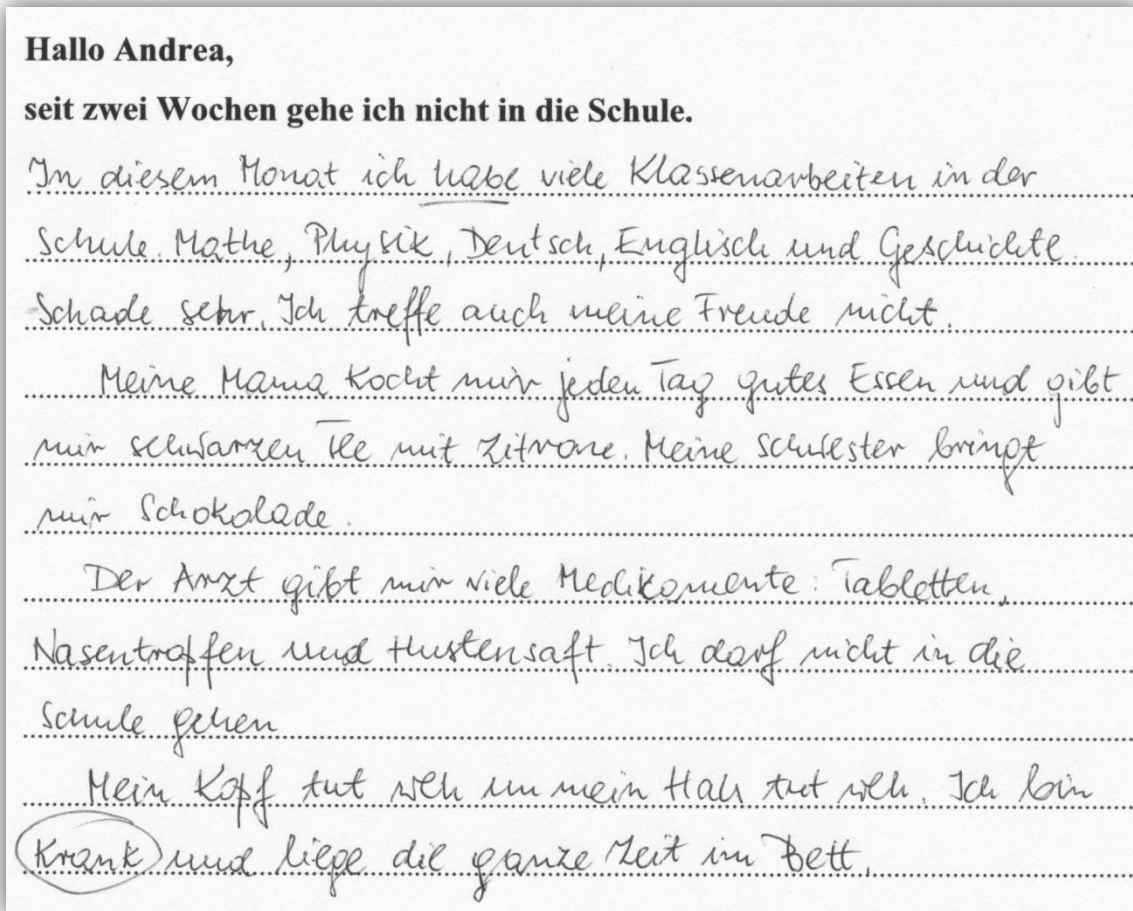 Hallo Andrea,
seit zwei Wochen gehe ich nicht in die Schule.
In diesem Monat ich habe viele Klassenarbeiten in der
Schule. Mathe, Physik, Deutsch, Englisch und Geschichte.
Schade sehr. Ich treffe auch meine Freude nicht.
Meine Mama kocht mir jeden Tag gutes Essen und gibt
mir schwarzen Tee mit Zitrone. Meine Schwester bringt
mir Schokolade.
Der Arzt gibt mir viele Medikamente: Tabletten,
Nasentropfen und Hustensaft. Ich darf nicht in die
Schule gehen
Mein Kopf tut weh un mein Hals tut weh. Ich bin
Krank und liege die ganze Zeit im Bett.